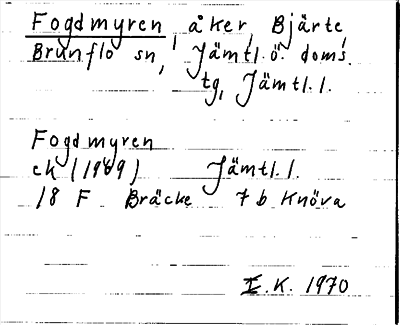 Fogdmyren, åker, Bjärte,
Brunflo sn, Jämtl. ö. doms.
tg, Jämtl. l.
Fogdmyren
ek (1969) Jämtl. l.
18 F Bräcke 7 b Knöva
I.K. 1970